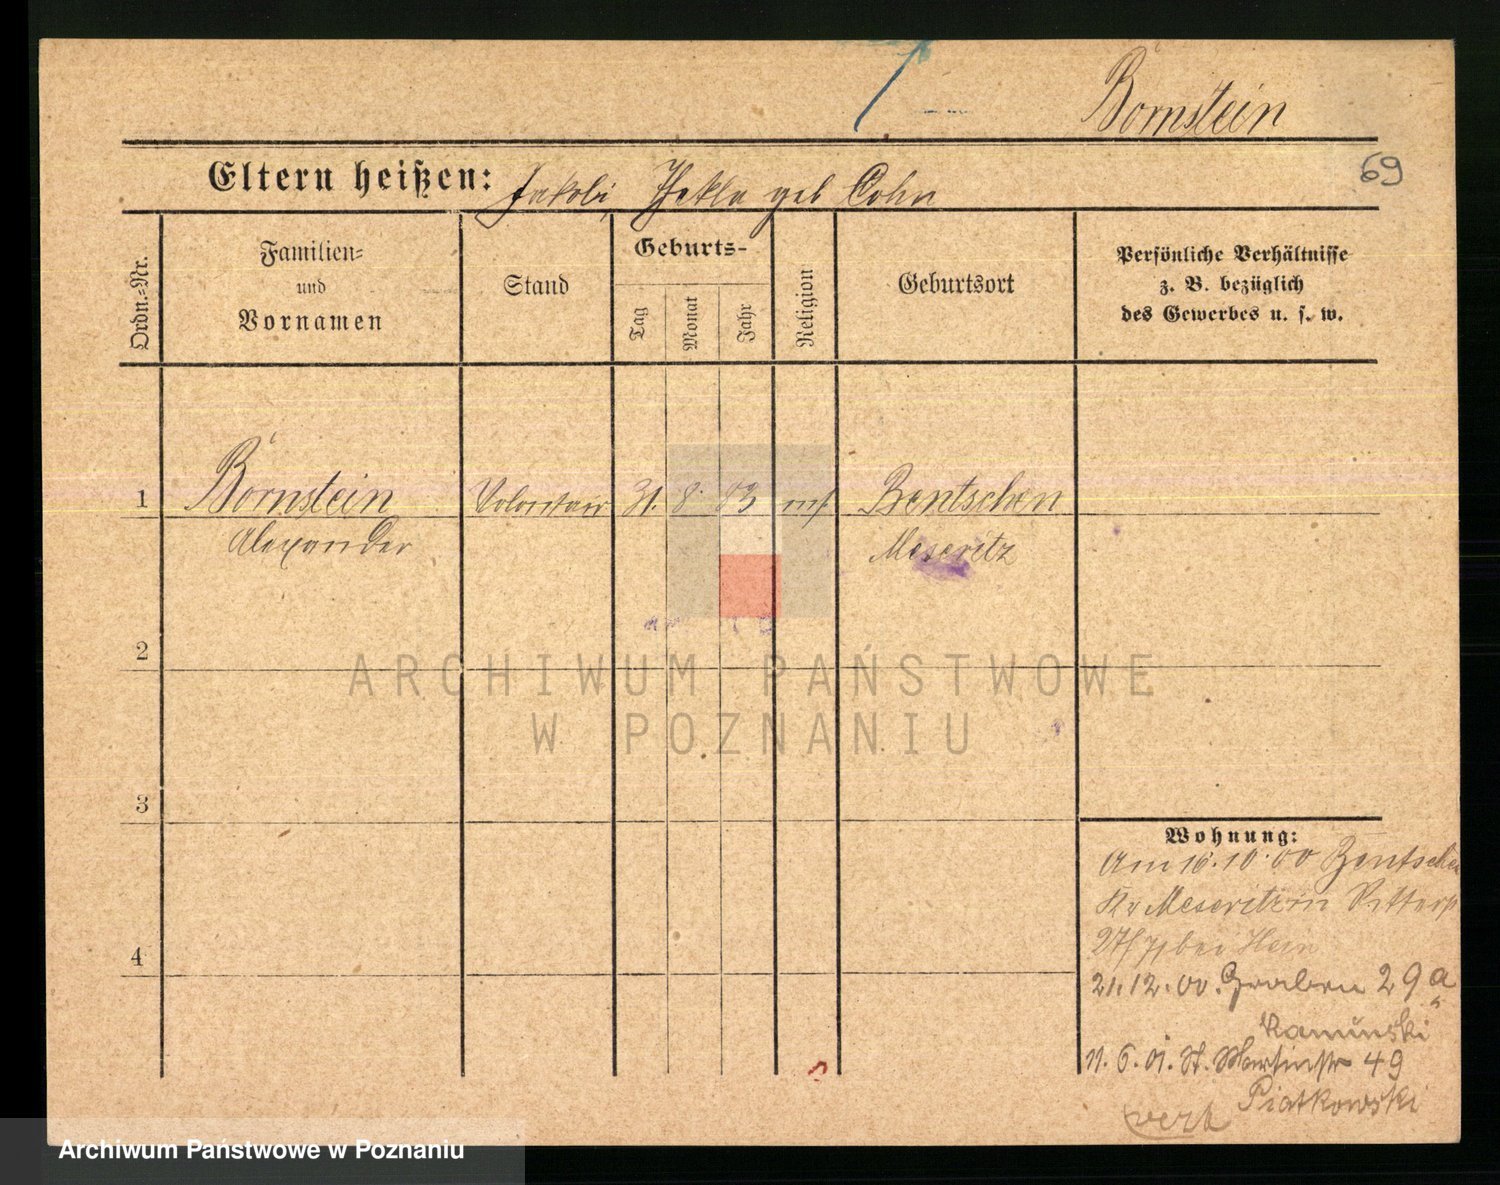 Börnstein
69
Eltern heißen: Jakobi, Thekla geb Cohn
Ordn.-Nr.
Familien- und Vornamen
Stand
Geburts-
Tag
Monat
Jahr
Religion
Geburtsort
Persönliche Verhältnisse
z. B. bezüglich
des Gewerbes u. s. w.
1 Börnstein Volontair 31. 8. 83 Bentschen
Alexander Meseritz
2
ARCHIWUM PAŃSTWOWE
W POZNANIU
3
4
Wohnung:
Am 16.10.00 Bentschen
Kr Meseritz in Ritterst
bei
21.12.00. Graben 29a
Kaminski
11.6.01. St. Martinstr 49
Piatkowski
verh
Archiwum Państwowe w Poznaniu